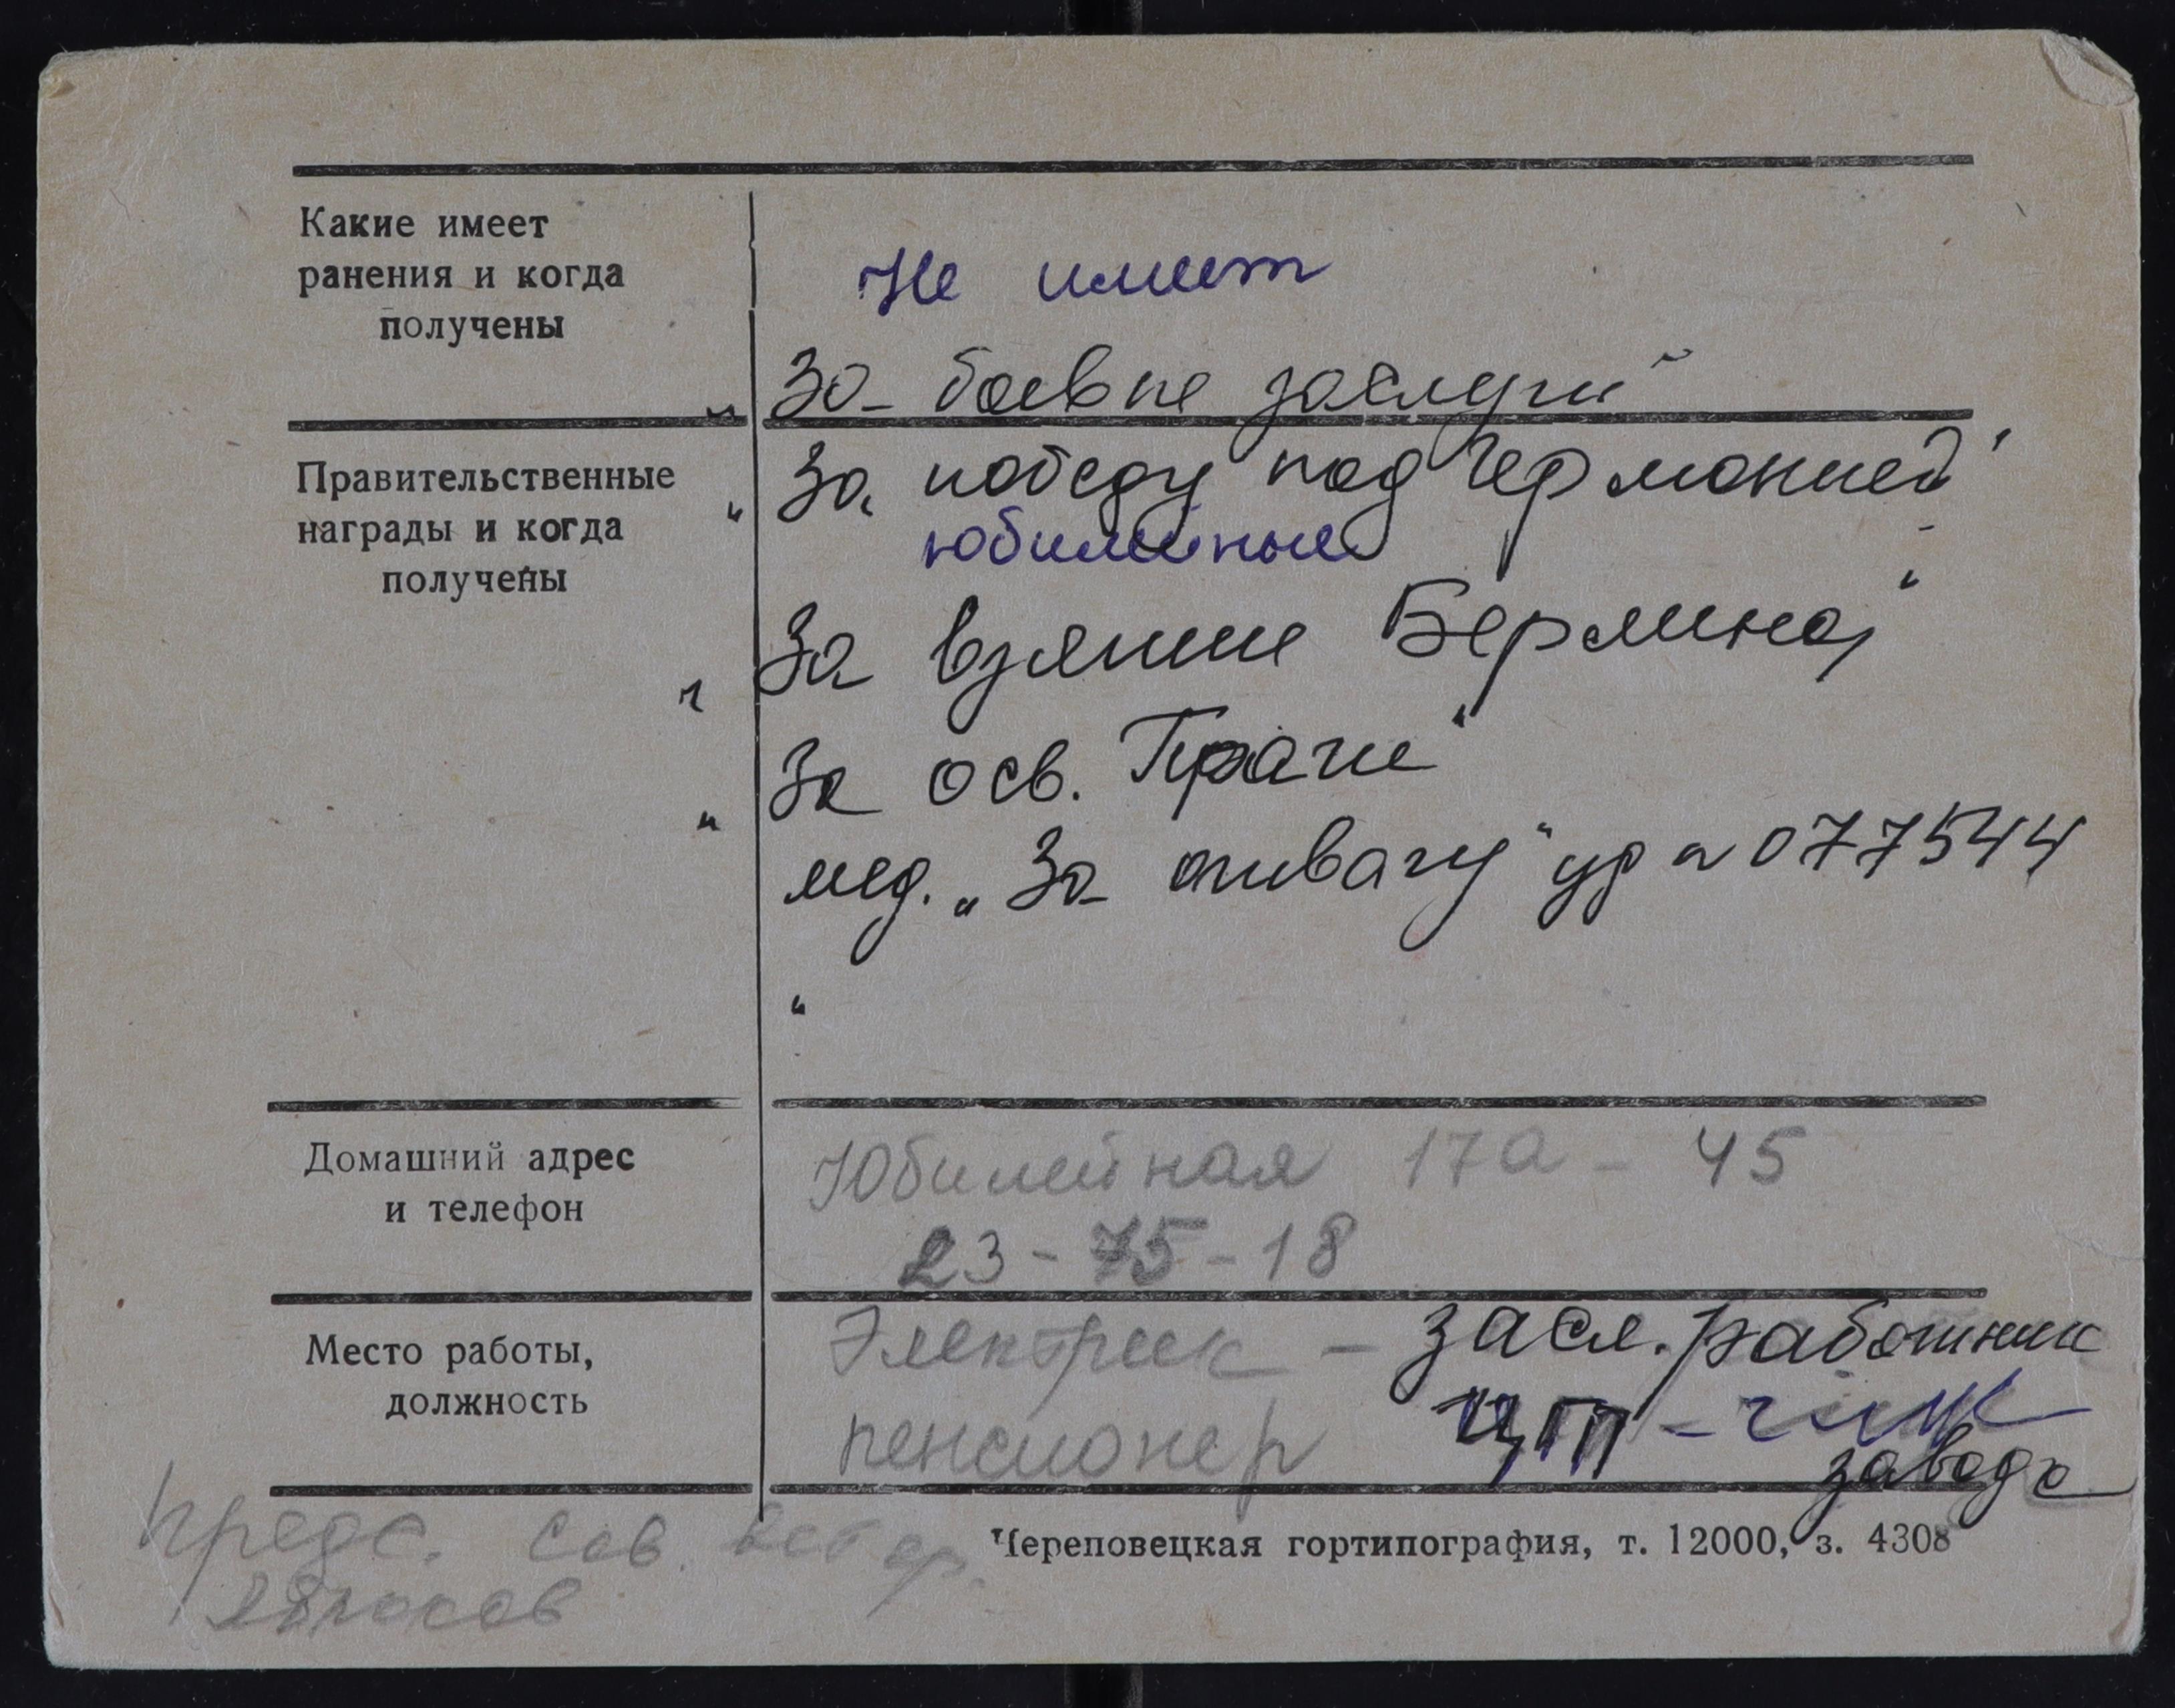 Какие имеет
ранения и когда
получены
Не имеет
„За боевые заслуги"
Правительственные
награды и когда
получены
„За победу над Германией"
юбилейные
„За взятие Берлина"
„За осв. Праги"
мед. „За отвагу" уд № 077544
Домашний адрес
и телефон
Юбилейная 17а - 45
23-75-18
Место работы,
должность
Электрик - засл. работник
пенсионер ЦГП -
завода
Предс. Сов. ветер.
Череповецкая гортипография, т. 12000, з. 4308